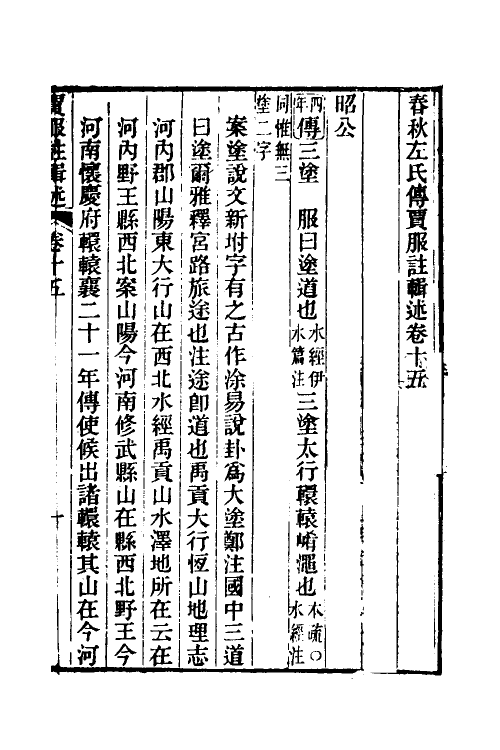 春秋左氏傳賈服註輯述卷十五
昭公
四年
傳三塗　服曰塗道也
水經伊
水篇注
三塗太行轘轅崤澠也
本疏○
水經注
同惟無三
塗二字
案塗說文新坿字有之古作涂易說卦爲大塗鄭注國中三道
曰塗爾雅釋宮路旅途也注途卽道也禹貢大行恆山地理志
河內郡山陽東大行山在西北水經禹貢山水澤地所在云在
河內野王縣西北案山陽今河南修武縣山在縣西北野王今
河南懷慶府轘轅襄二十一年傳使候出諸轘轅其山在今河
賈服註輯述　卷十五